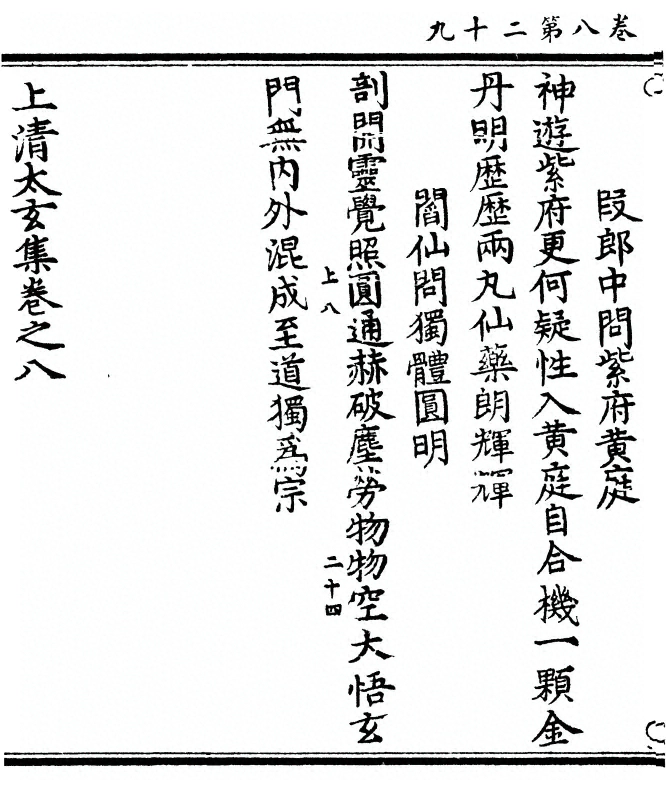 卷八第二十九
段郎中問紫府黄庭
神遊紫府更何疑性入黄庭自合機一顆金
丹明歴歴兩丸仙藥朗輝輝
閻仙問獨體圓明
剖開靈覺照圓通赫破塵勞物物空大悟玄
上八
二十四
門無内外混成至道獨爲宗
上清太玄集卷之八